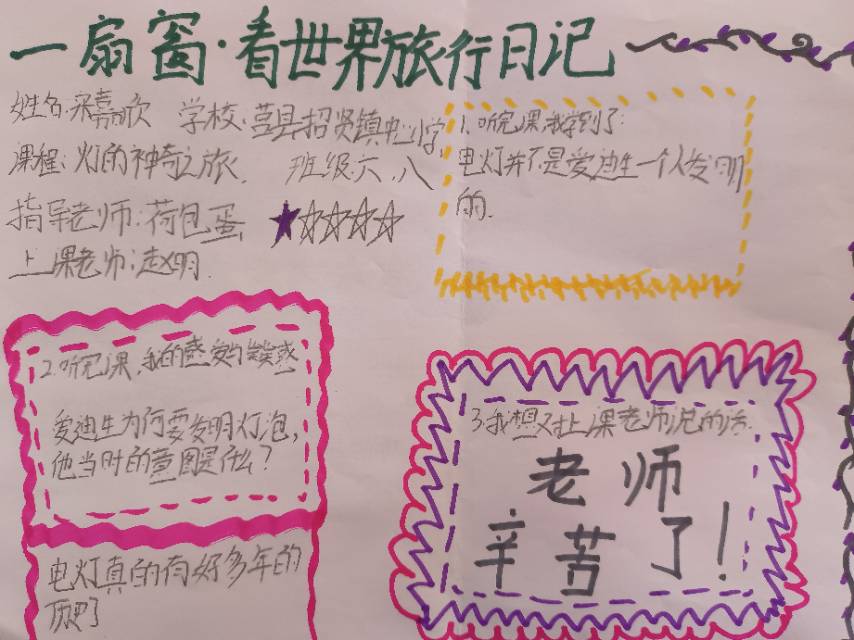 一扇窗·看世界旅行日记
姓名:宋嘉欣 学校:莒县招贤镇中心小学
课程:灯的神奇之旅. 班级:六.八
指导老师:荷包蛋
上课老师:赵明.
1.听完课,我学到了:
电灯并不是爱迪生一个人发明
的.
2.听完课,我的感受与疑惑
爱迪生为何要发明灯泡,
他当时的意图是什么?
电灯真的有好多年的
历史了
3.我想对上课老师说的话:
老师
辛苦了!